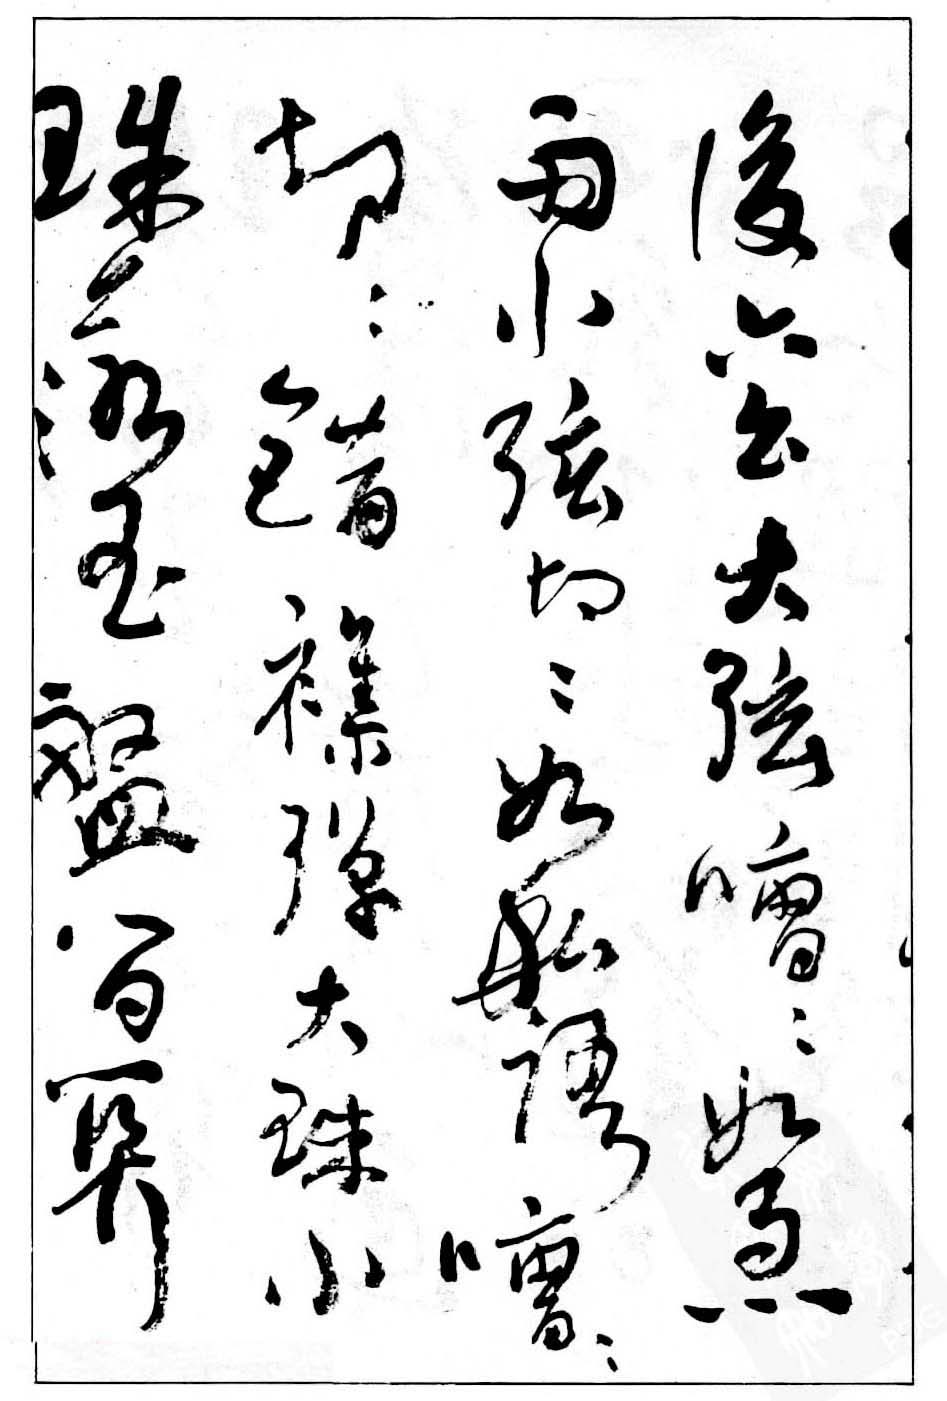 後六幺大弦嘈〻如急
雨小弦切〻如私語嘈〻
切〻錯襍彈大珠小
珠落玉盤間關